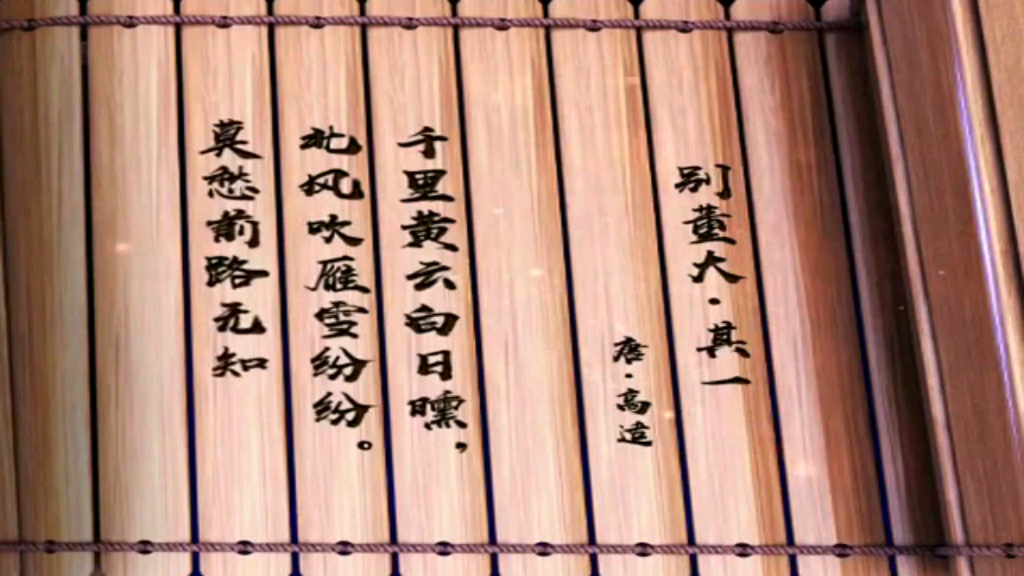 别董大·其一
唐·高适
千里黄云白日曛，
北风吹雁雪纷纷。
莫愁前路无知